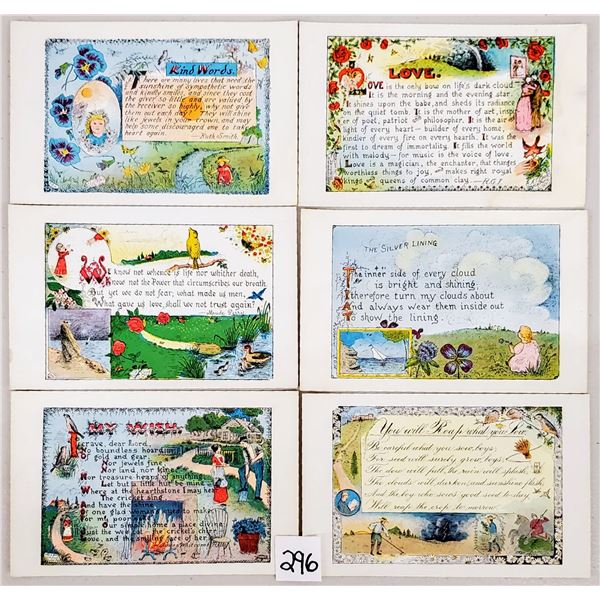 Kind Words.
There are many lives that need the
sunshine of sympathetic words
and kindly smiles, and since they cost
the giver so little and are valued by
the receiver so highly, why not give
them out each day? They will shine
like jewels in your crown and may
help some discouraged one to take
heart again. —Ruth Smith.
LOVE.
LOVE is the only bow on life's dark cloud
It is the morning and the evening star.
It shines upon the babe, and sheds its radiance
on the quiet tomb. It is the mother of art, inspir
er of poet, patriot and philosopher. It is the air and
light of every heart — builder of every home,
kindler of every fire on every hearth. It was the
first to dream of immortality. It fills the world
with melody — for music is the voice of love.
Love is a magician, the enchanter, that changes
worthless things to joy, and makes right royal
kings and queens of common clay. —R.G.I.
We know not whence is life nor whither death,
Know not the Power that circumscribes our breath
But yet we do not fear; what made us men,
What gave us love, shall we not trust again?
THE SILVER LINING
The inner side of every cloud
is bright and shining;
I therefore turn my clouds about
And always wear them inside out
To show the lining.
MY WISH.
I crave, dear Lord,
No boundless hoarding
Of gold and gear,
Nor jewels fine,
Nor land, nor kine,
Nor treasure heaps of anything.
Let but a little hut be mine
Where at the hearthstone I may hear
The cricket sing,
And have the shine
Of one glad woman's eyes to make
For my poor sake
Our simple home a place divine;
Just the wee cot – the cricket's chirr –
Love, and the smiling face of her.
You will Reap what you Sow.
Be careful what you sow, boys;
For seed will surely grow, boys;
The dew will fall, the rain will splash,
The clouds will darken, and sunshine flash,
And the boy who sows good seed to-day
Will reap the crop to-morrow.
296